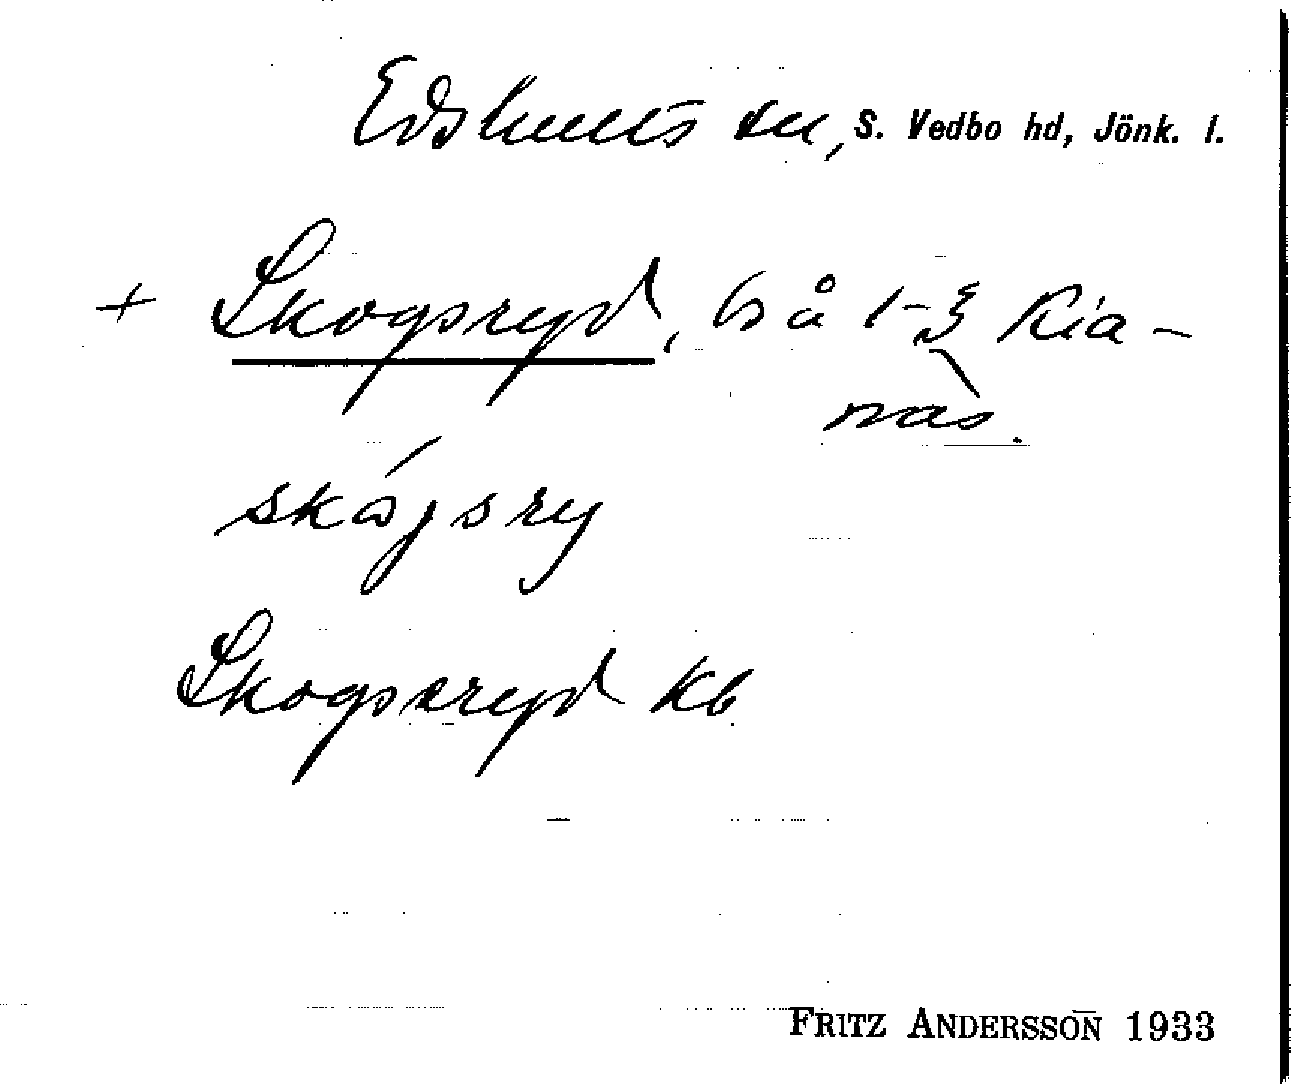 Edshults sn, S. Vedbo hd, Jönk. l.
+ Skogsryd, bs å 1-3 Kia-
näs.
skógsry
Skogsryd Kb
FRITZ ANDERSSON 1933